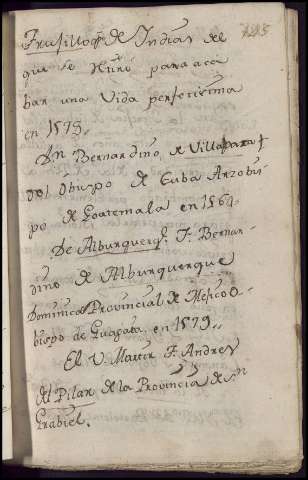 195
Trusillo qe de Indias del
que se retiró para aca
bar una Vida perfectisima
en 1573.
Dn Bernardino de Villalpara †
do Obispo de Cuba Arzobis
po de Goatemala en 1564.
De Alburquerqe. F. Bernar-
dino de Alburquerque
Dominico Provincial de Mexico O-
bispo de Guaxata, en 1579.
El V. Martir F. Andres
del Pilar de la Provincia de Sn
Grabiel.